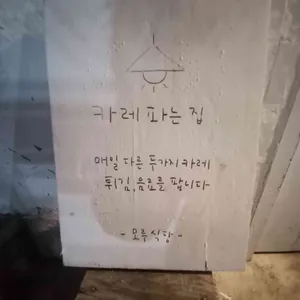 카레 파는 집
매일 다른 두가지 카레
튀김, 음료를 팝니다
- 모루식당 -